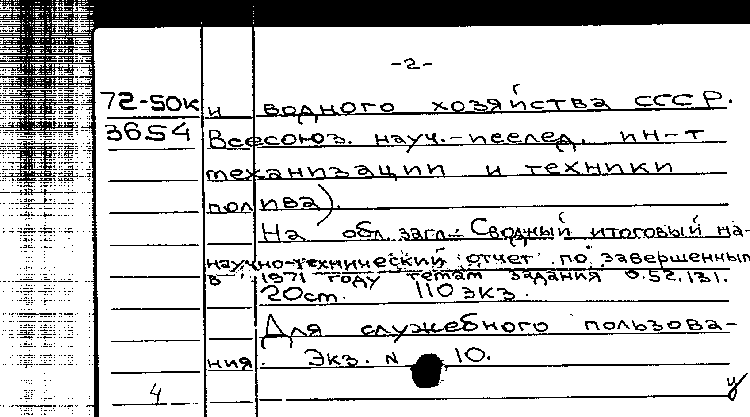 -2-
72-50к и водного хозяйства СССР.
3654 Всесоюз. науч.-исслед. ин-т
механизации и техники
полива).
На обл. загл.: Сводный итоговый на-
научно-технический отчет по завершенным
в 1971 году темам задания 0.52.131.
20cm. 110 экз.
Для служебного пользова-
ния. Экз. N 10.
4